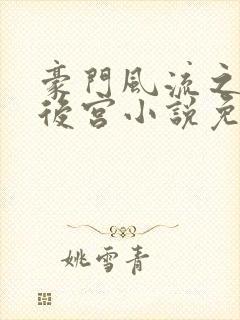 豪門風流之
後宮小說免
姚雪青